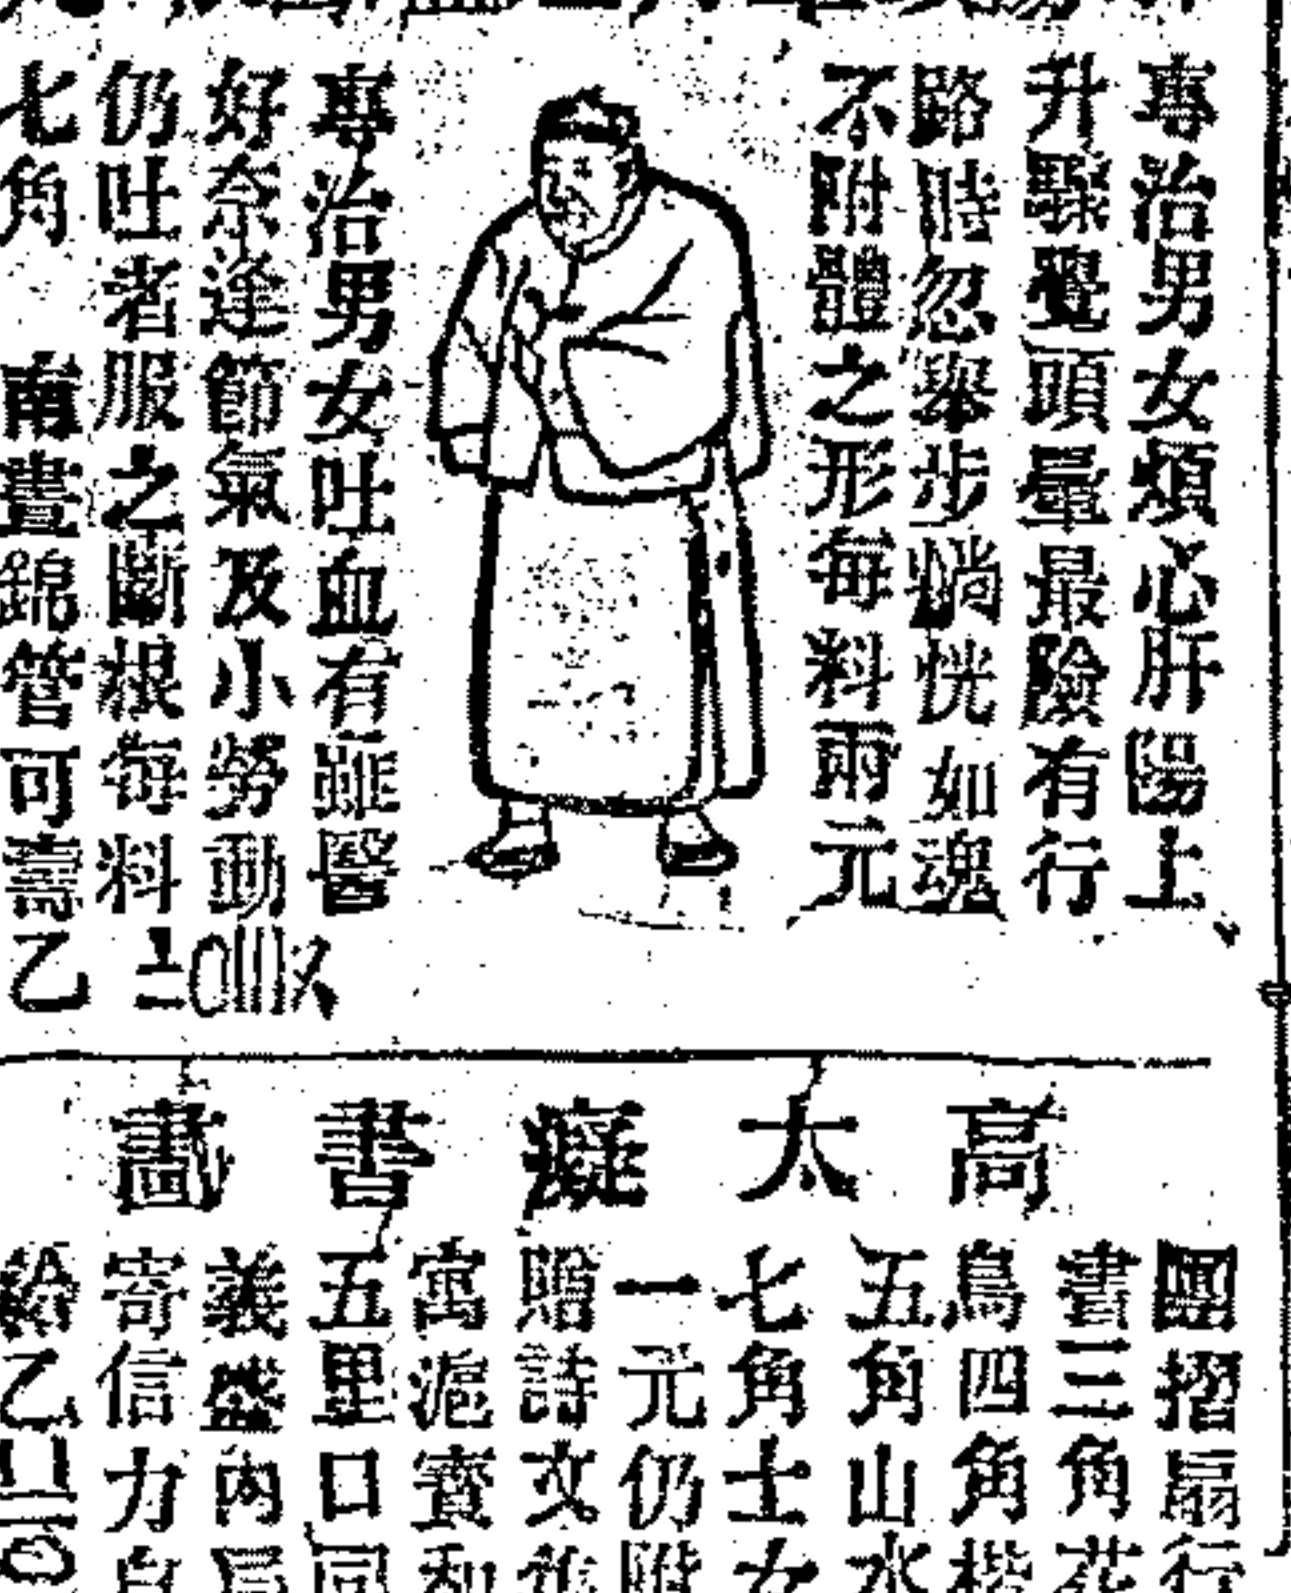 專治男女煩心肝陽上
升驟覺頭暈最險有行
路時忽舉步惝恍如魂
不附體之形每料兩元
專治男女吐血有雖醫
好奈逢節氣及小勞動
仍吐者服之斷根每料
七角 南晝錦管可壽
乙〨〇〣〤
高太癡書畫
團摺扇行
書三角花
鳥四角楷
五角山水
七角士女
一元仍附
贈詩文進
寓滬寶和
五里口同
義盛內局
寄信力自
給乙